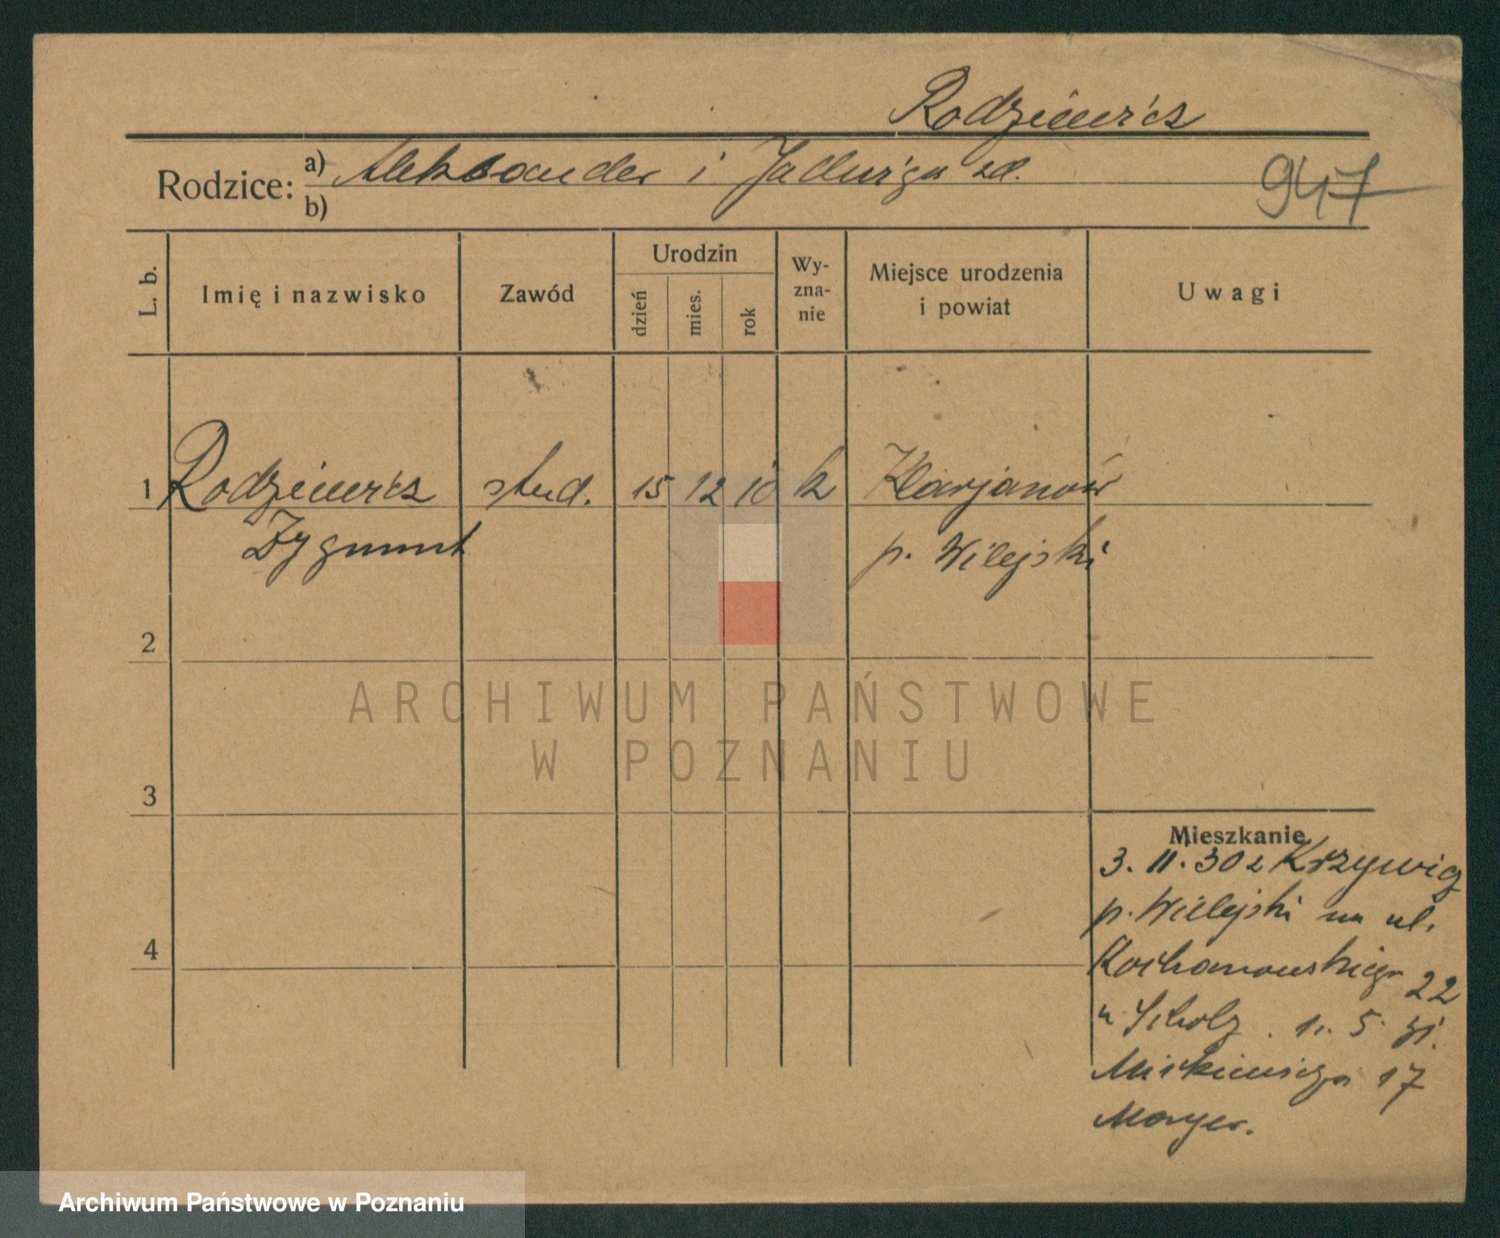 Rodziewicz
Rodzice: a) Aleksander i Jadwiga zd.
b)
947
L. b.
Imię i nazwisko
Zawód
Urodzin
dzień
mies.
rok
Wy-
zna-
nie
Miejsce urodzenia
i powiat
Uwagi
1 Rodziewicz stud. 15 12 10 k Klarjanów
Zygmunt p. Wilejski
2
ARCHIWUM PAŃSTWOWE
W POZNANIU
3
Mieszkanie
3. 11. 30 z Krzywicz
p. Wilejski na ul.
Kochanowskiego 22
u Scholz. 1. 5
Mickiewicza 17
Mayer.
4
Archiwum Państwowe w Poznaniu